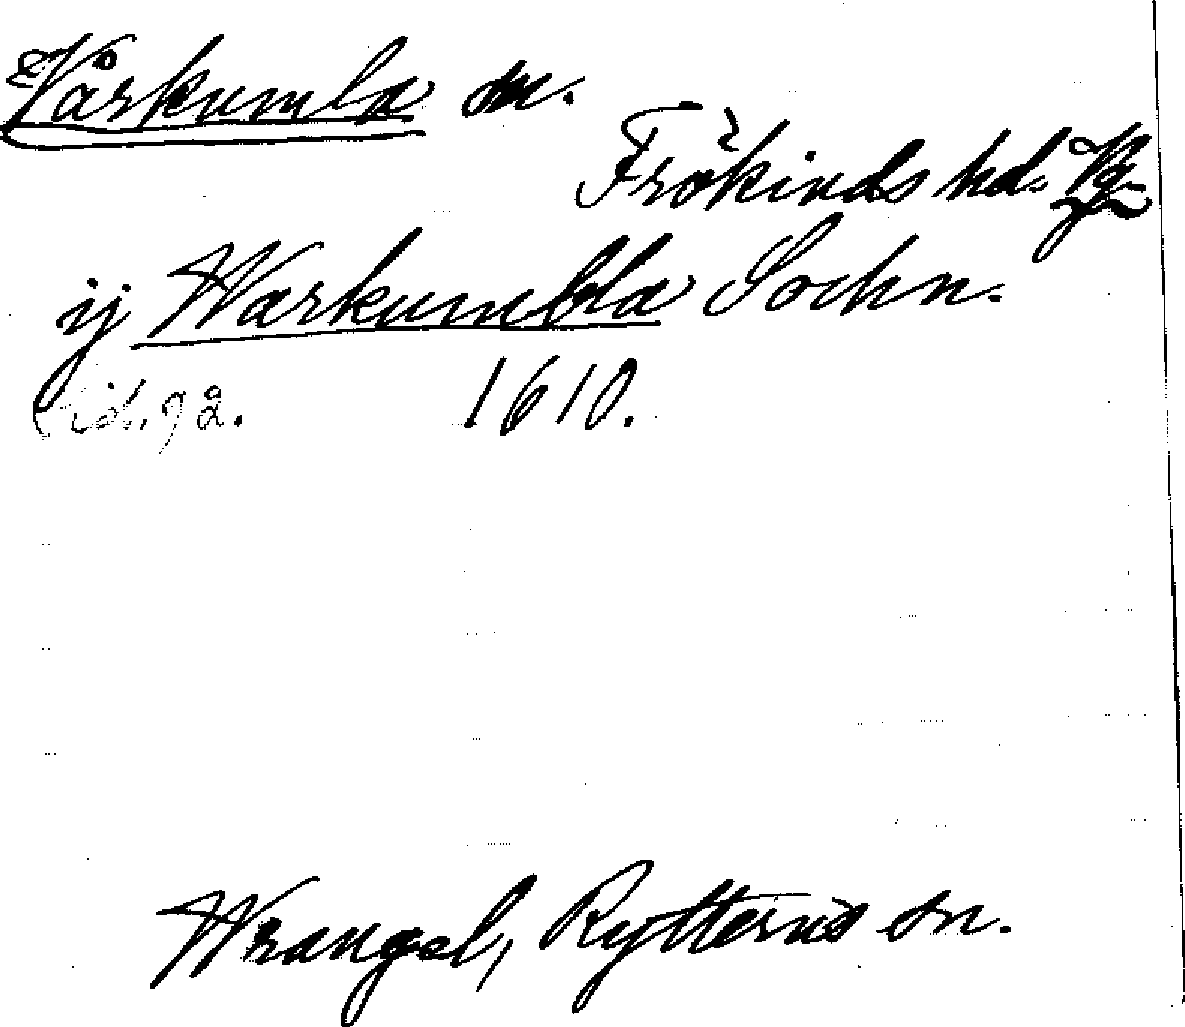 Vårkumla sn.
Frökinds hd. Vg.
ij Warkumbla Sochn.
Sid. 92. 1610.
Wrangel, Rytterns sn.